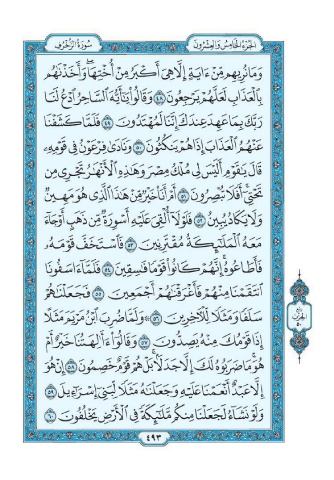 الجزء الخامس والعشرون سورة الزخرف
وَمَا نُرِيهِم مِّنْ ءَايَةٍ إِلَّا هِيَ أَكْبَرُ مِنْ أُخْتِهَا وَأَخَذْنَٰهُم
بِالْعَذَابِ لَعَلَّهُمْ يَرْجِعُونَ ٤٨ وَقَالُوا يَٰٓأَيُّهَ السَّاحِرُ ادْعُ لَنَا
رَبَّكَ بِمَا عَهِدَ عِندَكَ إِنَّنَا لَمُهْتَدُونَ ٤٩ فَلَمَّا كَشَفْنَا
عَنْهُمُ الْعَذَابَ إِذَا هُمْ يَنكُثُونَ ٥٠ وَنَادَىٰ فِرْعَوْنُ فِي قَوْمِهِ
قَالَ يَٰقَوْمِ أَلَيْسَ لِي مُلْكُ مِصْرَ وَهَٰذِهِ الْأَنْهَٰرُ تَجْرِي مِن
تَحْتِي أَفَلَا تُبْصِرُونَ ٥١ أَمْ أَنَا خَيْرٌ مِّنْ هَٰذَا الَّذِي هُوَ مَهِينٌ
وَلَا يَكَادُ يُبِينُ ٥٢ فَلَوْلَا أُلْقِيَ عَلَيْهِ أَسْوِرَةٌ مِّن ذَهَبٍ أَوْ جَاءَ
مَعَهُ الْمَلَٰٓئِكَةُ مُقْتَرِنِينَ ٥٣ فَاسْتَخَفَّ قَوْمَهُ
فَأَطَاعُوهُ إِنَّهُمْ كَانُوا قَوْمًا فَٰسِقِينَ ٥٤ فَلَمَّا ءَاسَفُونَا
انتَقَمْنَا مِنْهُمْ فَأَغْرَقْنَٰهُمْ أَجْمَعِينَ ٥٥ فَجَعَلْنَٰهُمْ
سَلَفًا وَمَثَلًا لِّلْءَاخِرِينَ ٥٦ وَلَمَّا ضُرِبَ ابْنُ مَرْيَمَ مَثَلًا
إِذَا قَوْمُكَ مِنْهُ يَصِدُّونَ ٥٧ وَقَالُوا ءَأَٰلِهَتُنَا خَيْرٌ أَمْ
هُوَ مَا ضَرَبُوهُ لَكَ إِلَّا جَدَلًا بَلْ هُمْ قَوْمٌ خَصِمُونَ ٥٨ إِنْ هُوَ
إِلَّا عَبْدٌ أَنْعَمْنَا عَلَيْهِ وَجَعَلْنَٰهُ مَثَلًا لِّبَنِي إِسْرَٰٓءِيلَ ٥٩
وَلَوْ نَشَاءُ لَجَعَلْنَا مِنكُم مَّلَٰٓئِكَةً فِي الْأَرْضِ يَخْلُفُونَ ٦٠
٤٩٣